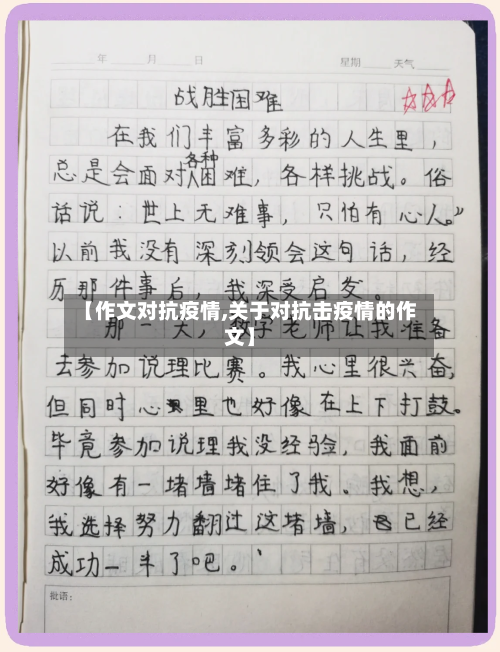 年 月 日 星期 天气
战胜困难
在我们丰富多彩的人生里，
总是会面对各种困难，各样挑战。俗
话说：世上无难事，只怕有心人。”
以前我没有深刻领会这句话，经
历那件事后，我深受启发
【作文对抗疫情,关于对抗击疫情的作
文】
那一天，老师让我准备
去参加说理比赛。我心里很兴奋，
但同时心里也好像在上下打鼓。
毕竟参加说理我没经验，我面前
好像有一堵墙堵住了我。我想，
我选择努力翻过这堵墙，已经
成功一半了吧。
批语：